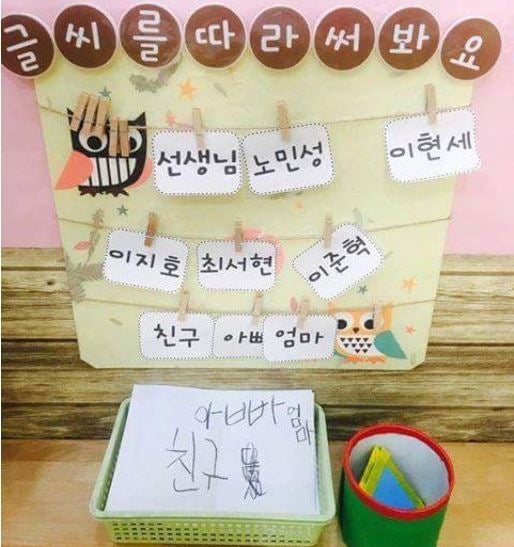 글씨를따라써봐요
선생님 노민성 이현세
이지호 최서현 이준혁
친구 아빠 엄마
아빠 엄마
친구